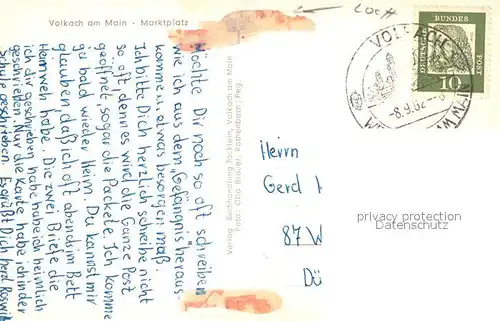 Volkach am Main - Marktplatz
Möchte Dir noch so oft schreiben
wie ich aus dem "Gefängnis" heraus-
komme u. etwas besorgen muß.
Ich bitte Dich herzlich schreibe nicht
so oft, denn es wird die Ganze Post
geöffnet, sogar die Packete. Ich komme
ja bald wieder Heim. Du kannst mir
glauben daß ich oft abends im Bett
Heimweh habe. Die zwei Briefe die
ich dir geschrieben habe habe ich heimlich
geschrieben. Nur die Karte habe ich in der
Schule geschrieben. Es grüßt Dich herzl. Roswit
Verlag: Buchhandlung
Volkach am Main
Foto: Otto
LOCH
DEUTSCHE BUNDESPOST
10
VOLKACH
-8.9.62
Herrn
Gerd
87 W
Dü
privacy protection
Datenschutz